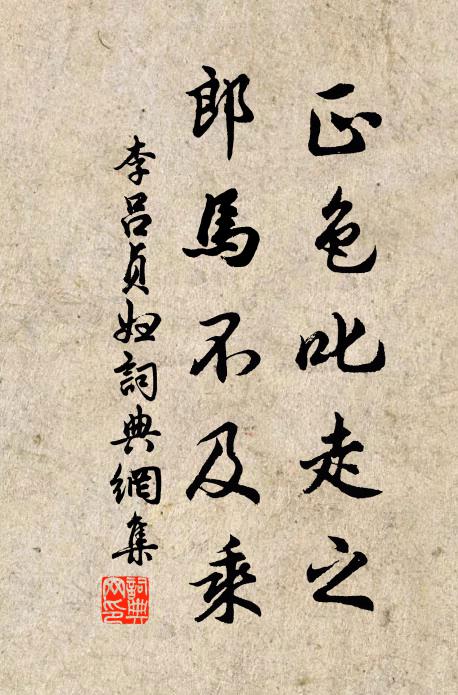 正色叱走之
郎馬不及乘
李呂貞妲詞典網集
詞典網印